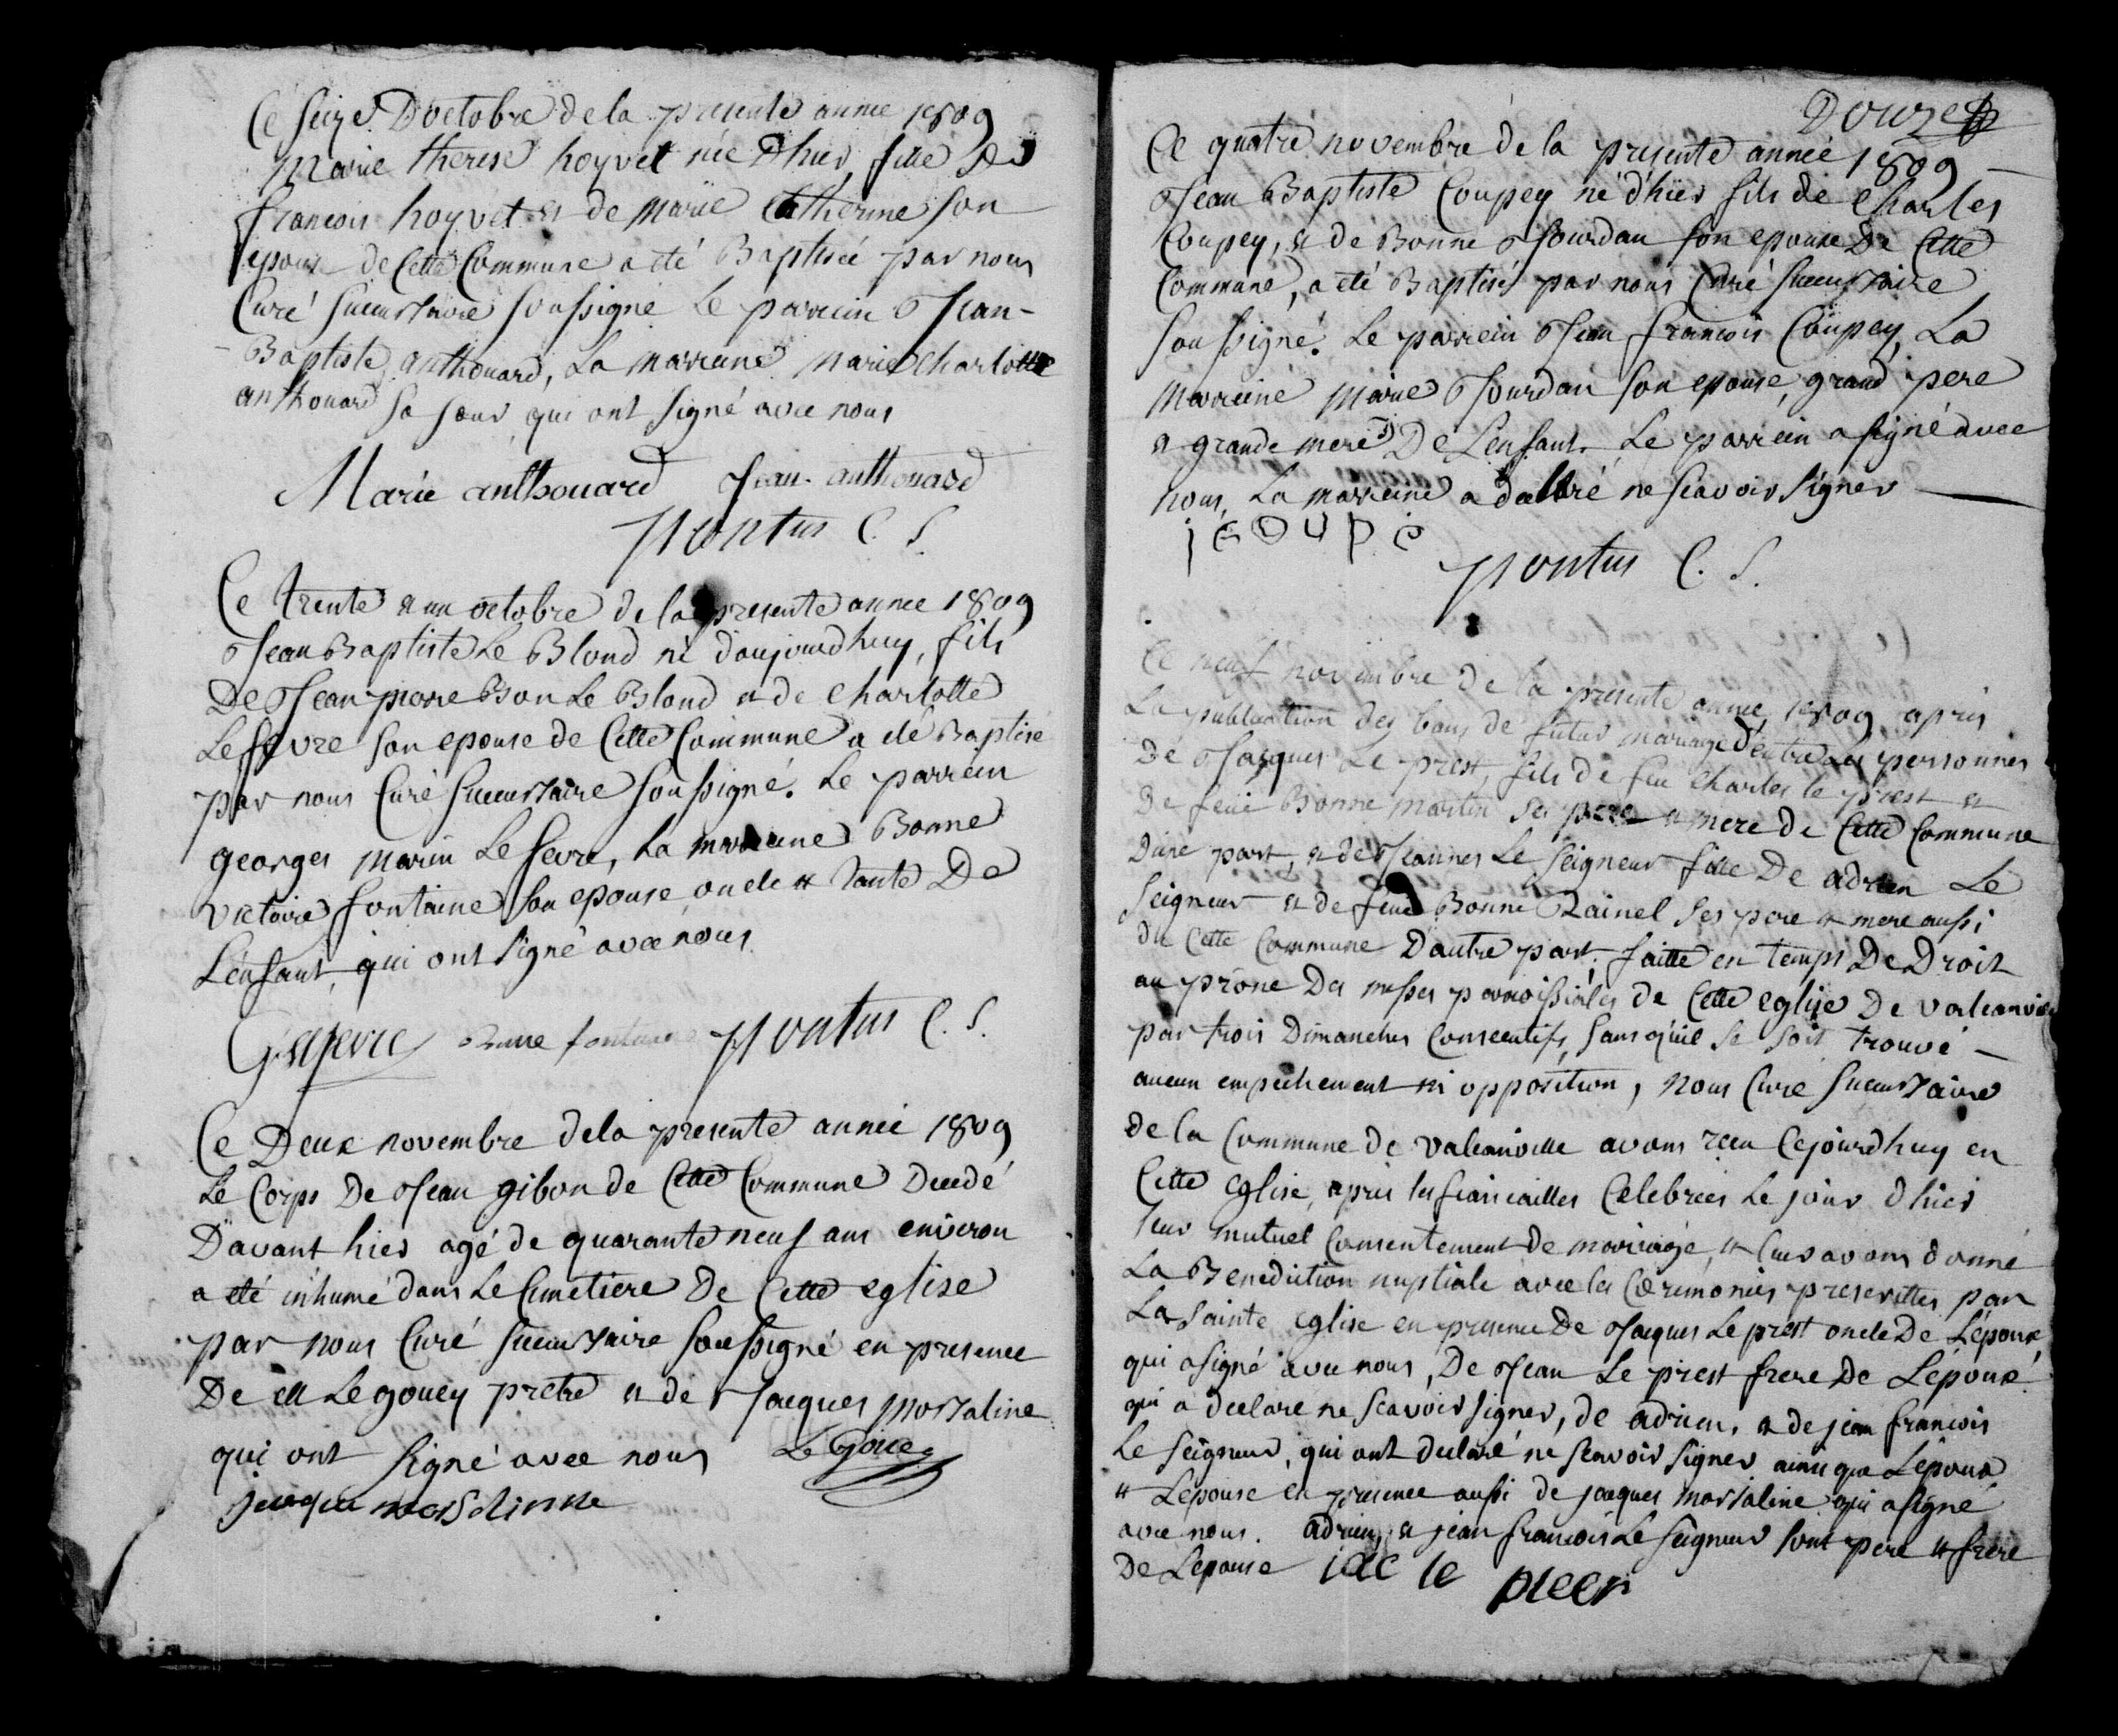 Ce seize D'octobre de la presente année 1809
Marie therese hoyvet née d'hier, fille de
francois hoyvet et de Marie Catherine son
epouse de Cette Commune a été Baptisée par nous
Curé succursaire soussigné Le parrein Jean-
Baptiste anthouard, La marreine Marie Charlotte
anthouard sa sœur qui ont signé avec nous
Marie anthouard Jean anthouard
pontus C. S.
Ce trente et un octobre de la presente année 1809
Jean Baptiste Le Blond né d'aujourdhuy, fils
De Jean pierre Bon Le Blond et de Charlotte
Lefevre son epouse de Cette Commune a été Baptisé
par nous Curé succursaire soussigné. Le parrein
georges marin Lefevre, La marreine Bonne
victoire fontaine son epouse, oncle et tante De
L'enfant, qui ont signé avec nous
G Lefevre Bonne fontaine pontus C. S.
Ce Deux novembre de la presente année 1809
Le Corps De Jean gibon de Cette Commune Decedé
D'avant hier agé de quarante neuf ans environ
a été inhumé dans Le Cimetiere De Cette eglise
par nous Curé succursaire soussigné en presence
De M Le gouey pretre et de Jacques mossaline
qui ont signé avec nous Le Gouey
Douze
Ce quatre novembre de la presente année 1809
Jean Baptiste Coupey né d'hier fils de Charles
Coupey, et de Bonne Jourdan son epouse De Cette
Commune, a été Baptisé par nous Curé succursaire
soussigné. Le parrein Jean francois Coupey, La
marreine Marie Jourdan son epouse, grand pere
et grande mere De L'enfant. Le parrein a signé avec
nous, La marreine a declaré ne scavoir signer
jcoupe
pontus C. S.
Ce neuf novembre de la presente année 1809 apres
La publication des bans de futur mariage d'entre Les personnes
De Jacques Le prest, fils de feu Charles le prest et
De feue Bonne martin ses pere et mere de Cette Commune
D'une part, et de Jeanne Le Seigneur fille De adrien Le
Seigneur et de feue Bonne Rainel ses pere et mere aussi
de Cette Commune D'autre part, faitte en temps De Droit
au prône Des messes parroissiales de Cette eglise De valcanville
par trois Dimanches Consecutifs, sans qu'il se soit trouvé
aucun empechement ni opposition, nous Curé succursaire
de la Commune de valcanville avons recu Cejourdhuy en
Cette eglise, apres les fiancailles Celebrées Le jour d'hier
leur mutuel Consentement de mariage, et leur avons donné
La Benediction nuptiale avec les Ceremonies prescrittes par
La sainte eglise en presence De Jacques Le prest oncle De L'epoux,
qui a signé avec nous, De Jean Le prest frere De L'epoux
qui a declaré ne scavoir signer, de adrien, et de jean francois
Le Seigneur, qui ont declaré ne scavoir signer ainsi que L'epoux
et L'epouse en presence aussi de jacques mossaline qui a signé
avec nous. adrien, et jean francois Le Seigneur sont pere et frere
De L'epouse jac le preer